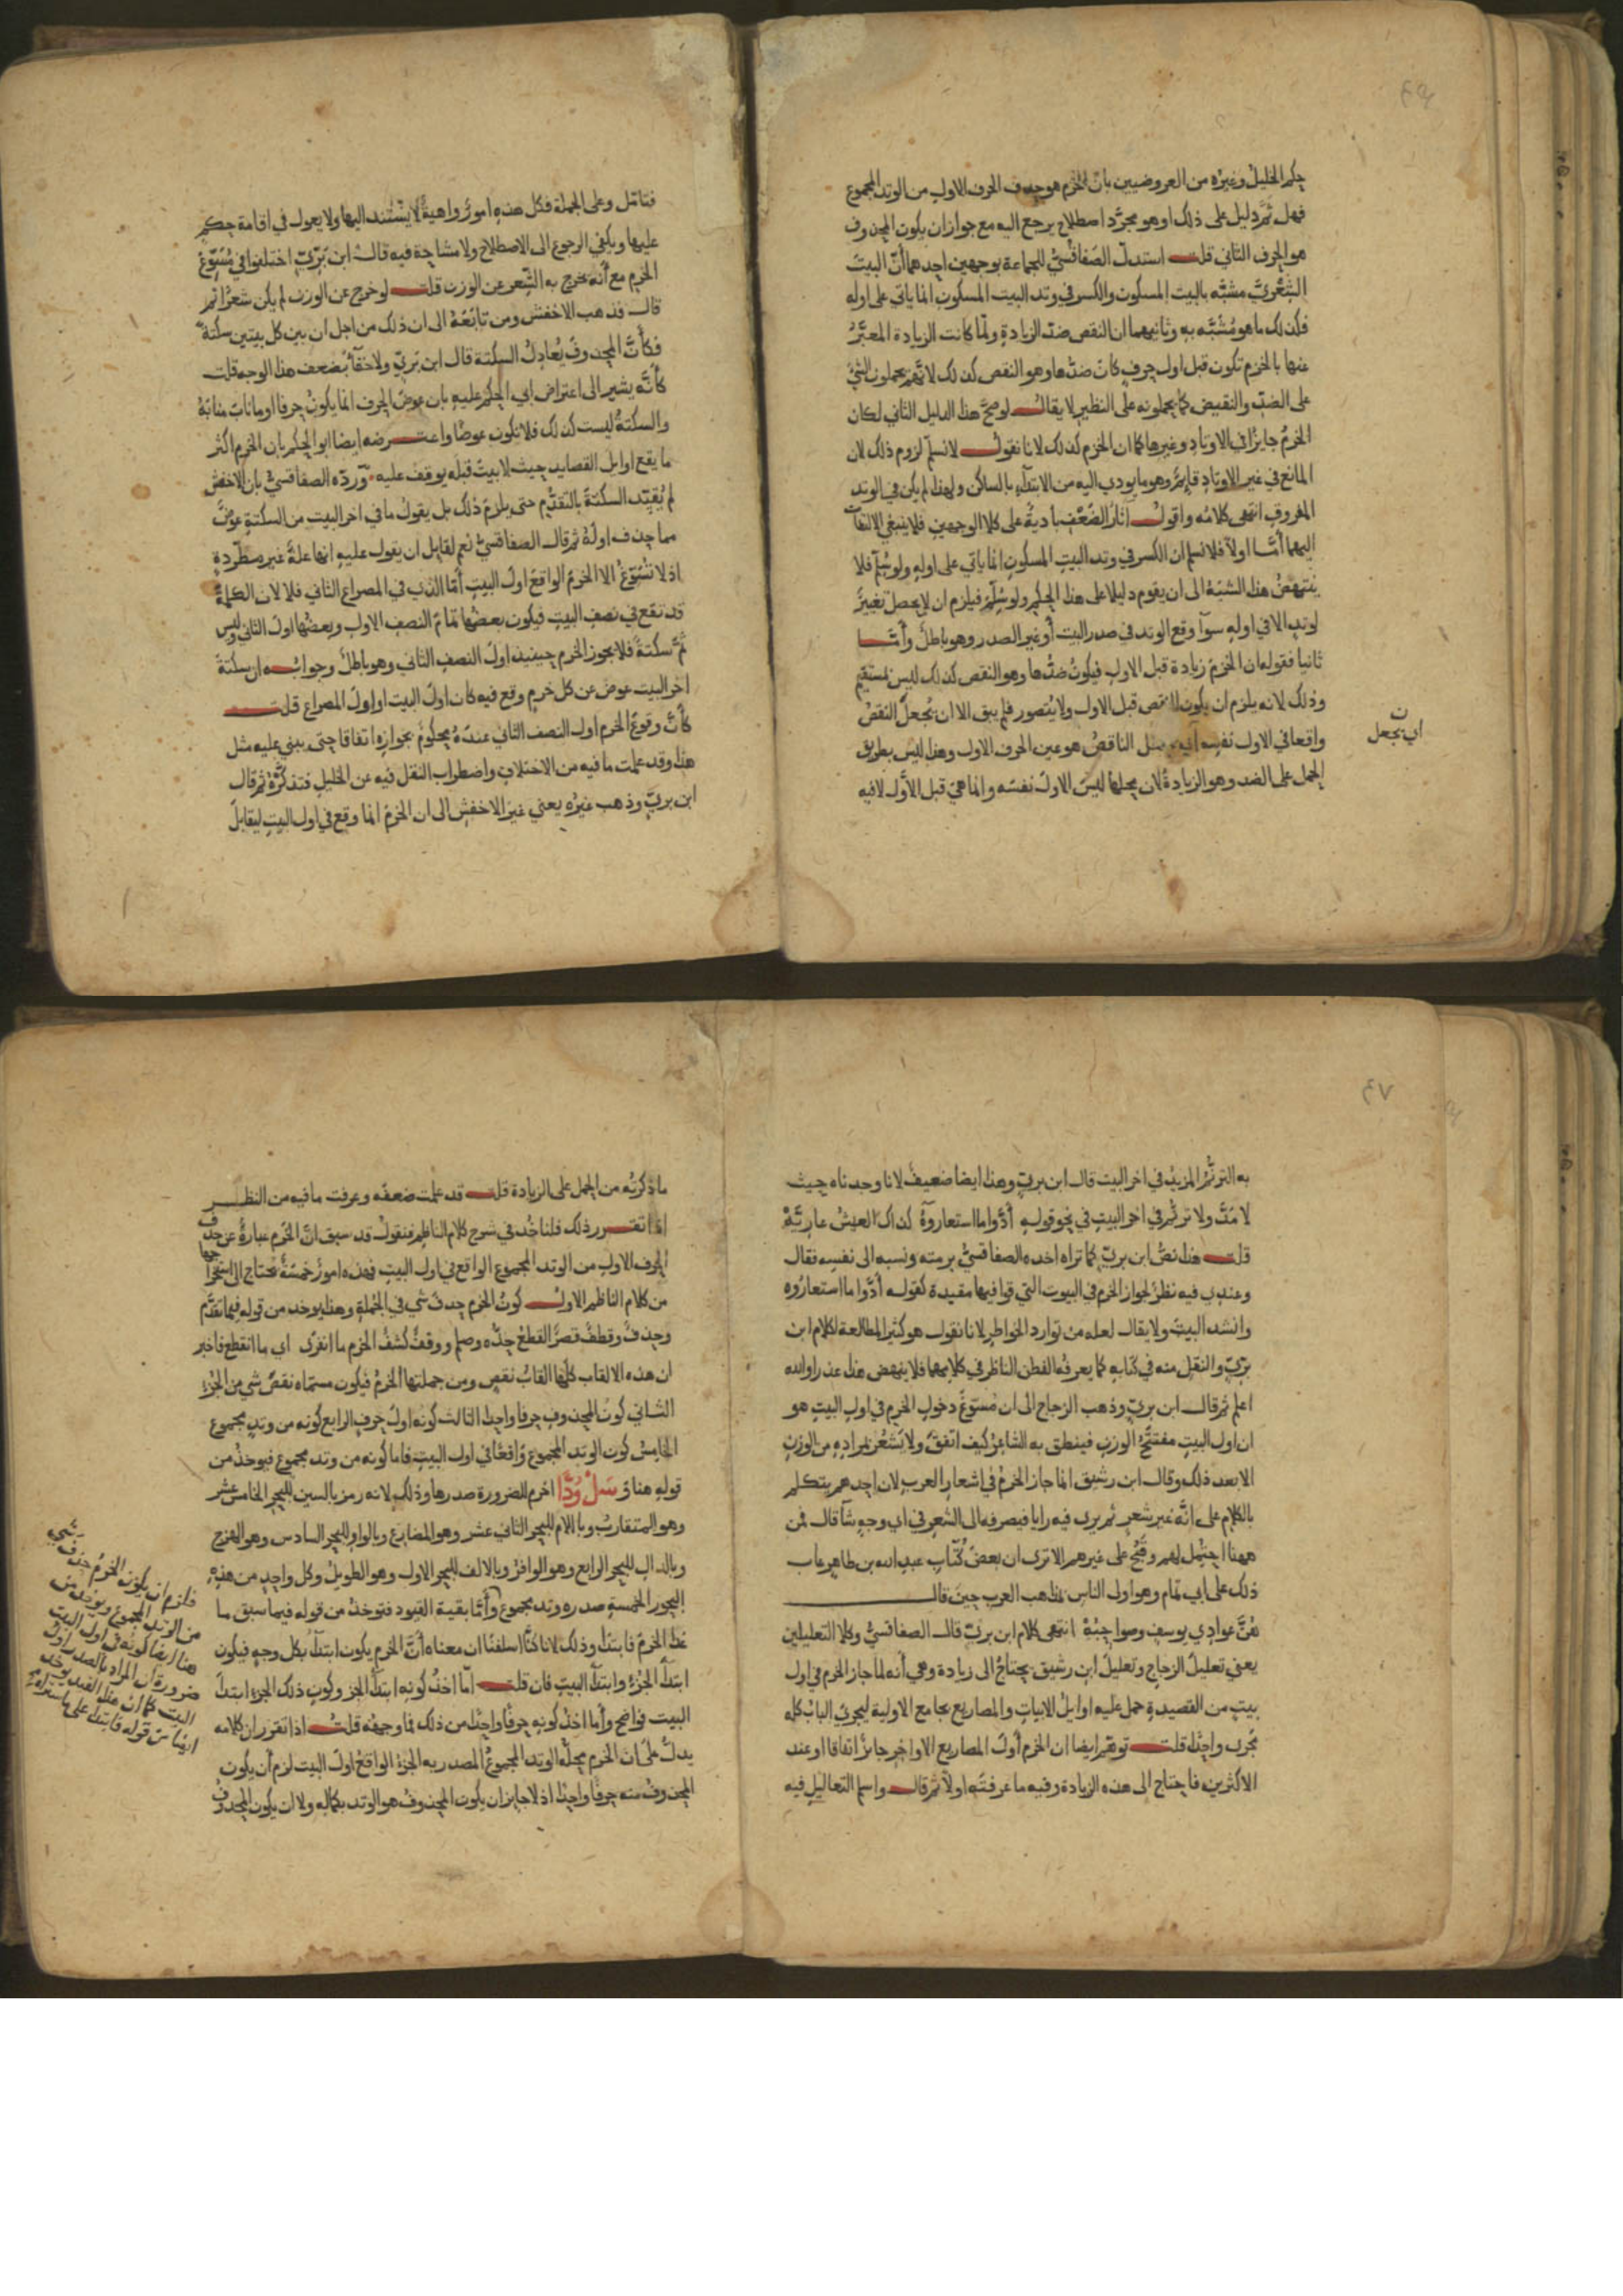 ٤٦
حكم الخليل وغيره من العروضيين بان الخرم هو حذف الحرف الاول من الوتد المجموع
فهل ثمَّ دليل على ذلك او هو مجرّد اصطلاح يرجع اليه مع جواز ان يكون المحذوف
هو الحرف الثاني قلت استدلّ الصَفاقُسيُّ للجماعة بوجهين احدهما أنّ البيتَ
الشِعْريَّ مشبّه بالبيت المسكون والكسر في وتد البيت المسكون انما ياتي على اوله
فكذلك ما هو مُشَبَّه به وثانيهما ان النقص ضدّ الزيادةِ ولمّا كانت الزيادة المعبَّرُ
عنها بالخزم تكون قبل اول حرفٍ كانَ ضدّها وهو النقص كذلك لانهم يحملون الشيَ
على الضدّ والنقيض كما يحملونه على النظير لا يقالُ لو صحَّ هذا الدليل الثاني لكان
الخرمُ جايزًا في الاوتادِ وغيرها كما ان الخزم كذلك لانا نقولُ لا نسلّم لزوم ذلك لان
المانع في غير الاوتادِ قايمٌ وهو ما يودي اليه من الابتدآءِ بالساكن ولهذا لم يكن في الوتد
المفروقِ انتهى كلامُه واقولُ اثارُ الضَعْفِ باديةٌ على كلا الوجهينِ فلا ينبغي الالتفاتُ
اليهما أمَّا اولاً فلا نسلم ان الكسر في وتد البيتِ المسكونِ انما ياتي على اولهِ ولو سُلِّمَ فلا
ينتهضُ هذا الشبَهُ الى ان يقوم دليلا على هذا الحكمِ ولو سُلِّمَ فيلزم ان لا يحصل تغييرٌ
لوتدٍ الا في اوله سوآ وقع الوتد في صدر البيت أو غير الصدر وهو باطلٌ وأمَّا
ثانيا فقوله ان الخزمَ زيادة قبل الاول فيكونُ ضدُّها وهو النقص كذلك ليس بمستقيمٍ
وذلك لانه يلزم ان يكون النقص قبل الاول ولا يُتصور فلم يبق الا ان نُجعلَ النقصُ
واقعا في الاول نفسه اي يجعل الناقصُ هو عين الحرف الاول وهذا ليس بطريق
الحمل على الضد وهو الزيادةُ لان محلها ليسَ الاول نفسَه وانما هي قبل الأوَّل لا فيه
ن
اي يجعل
فتامّل وعلى الجملة فكل هذهِ امورٌ واهيةٌ لا يُسْتَند اليها ولا يعول في اقامة حكمٍ
عليها ويكفي الرجوعُ الى الاصطلاحِ ولا مشاحة فيه قالَ ابن بَرّيّ اختلفوا في مُسَوّغ
الخرم مع أنّه يخرج به الشِعر عن الوزن قلت لو خرج عن الوزن لم يكن شعرًا ثم
قالَ فذهب الاخفش ومن تابَعَهُ الى ان ذلك من اجل ان بين كل بيتين سكتةً
فكأَنَّ المحذوفَ يُعادِلُ السكتة قال ابن بَريّ ولا خفآءُ بضعف هذا الوجه قلت
كأَنّه يشير الى اعتراض ابي الحكم عليهِ بان عوضَ الحرفِ انما يكونُ حرفا او ما نابَ منابَهُ
والسكتةُ ليست كذلك فلا تكون عوضًا واعترضه ايضا ابو الحكم بان الخرم اكثر
ما يقع اوايل القصايد حيث لا بيتَ قبلَه يوقف عليه وَردّه الصفاقسيُّ بان الاخفش
لم يُقيّد السكتةَ بالتقدُّم حتى يلزمَ ذلك بل يقولُ ما في اخر البيت من السكتةِ عوضٌ
مما حذف اولَهُ ثم قالَ الصفاقسيُّ نعم لقايل ان يقول عليهِ انها علةٌ غير مطّردةٍ
اذ لا تُسَوّغُ الا الخرمَ الواقعَ اولَ البيتِ أمّا الذي في المصراع الثاني فلا لان الكلمةَ
قد تقع في نصفِ البيتِ فيكون بعضُها تمامَ النصفِ الاول وبعضُها اولَ الثاني وليس
ثمَّ سكتةٌ فلا يجوز الخرم حينيذ اولَ النصفِ الثاني وهو باطلٌ وجوابُه ان سكتةَ
اخر البيت عوضٌ عن كل خرمٍ وقع فيه كان اولَ البيت او اولَ المصراعِ قلت
كأنَّ وقوعَ الخرم اولَ النصف الثاني عندَهُ محكومٌ بجوازهِ اتفاقا حتى يبني عليه مثل
هذا وقد علمت ما فيه من الاختلاف واضطراب النقل فيه عن الخليل فتذكَّرْهُ ثم قال
ابن بريّ وذهب غيرُه يعني غيرَ الاخفش الى ان الخرمَ انما وقع في اول البيت ليقابلَ
٤٧
به الترنُّمُ المزيدُ في اخر البيت قالَ ابن بريّ وهذا ايضا ضعيفٌ لانا وجدناه حيث
لا مَدَّ ولا ترنُّم في اخر البيتِ في نحو قولهِ أدُّوا ما استعاروهُ كذاك العيشُ عاريَّهْ
قلت هذا نصُّ ابن بريّ كما تراه اخذه الصفاقسيُّ برمته ونسبه الى نفسِه فقال
وعندي فيه نظرٌ لجواز الخرم في البيوت التي قوافيها مقيدة كقوله أدُّوا ما استعارُوه
وانشد البيتَ ولا يقالُ لعله من توارد الخواطرِ لانا نقول هو كثير المطالعةِ لكلام ابن
بريّ والنقلِ منه في كتابه كما يعرفُه الفطن الناظر في كلامهما فلا ينهض هذا عذرا والله
اعلم ثم قالَ ابن بريّ وذهب الزجاج الى ان مُسَوِّغَ دخول الخرم في اول البيتِ هو
ان اول البيتِ مفتتَحُ الوزن فينطق به الشاعرُ كيف اتفقَ ولا يُشعُر بمرادِهِ من الوزن
الا بعد ذلك وقال ابن رشيق انما جاز الخرمُ في اشعار العرب لان احدهم يتكلم
بالكلامِ على أنَّه غيرُ شعرٍ ثم يرى فيه رايا فيصرفه الى الشعر في اي وجهٍ شآ قال فمن
ههنا احتُمِل لهم وقَبُحَ على غيرهم الا ترى ان بعضَ كُتّابِ عبد الله بن طاهر عابَ
ذلك على ابي تمام وهو اول الناس بمذهب العرب حينَ قال
هُنَّ عوادي يوسفٍ وصواحِبُهْ انتهى كلام ابن بريّ قالَ الصفاقسيُّ وكلا التعليلينِ
يعني تعليلَ الزجاج وتعليلَ ابن رشيقٍ يحتاجُ الى زيادة وهي أنه لما جاز الخرم في اول
بيتٍ من القصيدة حمل عليهِ اوايلُ الابياتِ والمصاريع بجامع الاولية ليجريَ البابُ كله
مجرى واحِدًا قلت توهّم ايضا ان الخرم أولَ المصاريعِ الاواخرِ جايزٌ اتفاقا او عند
الاكثرين فاحتاج الى هذه الزيادة وفيه ما عرفتَه اولاً ثم قالَ واسلم التعاليل فيه
ما ذكرتُه من الحمل على الزيادة قلت قد علمت ضعفَه وعرفت ما فيه من النظر
اذا تقرر ذلك فلناخُذ في شرح كلامِ الناظم فنقولُ قد سبق أنَّ الخَرم عبارةٌ عن حذف
الحرف الاولِ من الوتد المجموع الواقع في اول البيتِ فهذه امورٌ خمسةٌ نحتاج الى استخراجها
من كلام الناظم الاولُ كونُ الخرم حذفَ شي في الجُملةِ وهذا يوخذ من قولهِ فيما تقدَّم
وحذفٌ وقطفٌ قصرٌ القطعُ حذُّه وصلمٌ ووقفٌ كشفٌ الخرم ما انفرى اي ما انقطع فاخبر
ان هذه الالقاب كلَّها القابُ نقصٍ ومن جملتها الخرمُ فيكون مسمّاه نقصَ شي من الجُزءِ
الثاني كونُ المحذوفِ حرفا واحِدا الثالث كونُه اولَ حرفٍ الرابع كونُه من وتدٍ مجموع
الخامسُ كون الوتد المجموع واقعًا في اول البيتِ فاما كونُه من وتد مجموع فيوخذُ من
قولهِ هنا وَ سَلْ وُدًّا اخرم للضرورة صدرها وذلك لانه رمز بالسين للبحر الخامس عشر
وهو المتقاربُ وباللام للبحر الثاني عشر وهو المضارعُ وبالواو للبحر السادس وهو الهزج
وبالدال للبحر الرابع وهو الوافرُ وبالالف للبحر الاول وهو الطويلُ وكل واحدٍ من هذهِ
البحور الخمسةِ صدره وتد مجموع وأمَّا بقيةُ القيود فتوخذُ من قوله فيما سبق ما
خط الخرمَ فابتدا وذلك لانا كنَّا اسلفنا ان معناه أنَّ الخرم يكون ابتدآءً بكل وجهٍ فيكون
ابتدآءَ الجُزءِ وابتدآءَ البيتِ فان قلت امّا اخذُ كونِه ابتدآءَ الجزءِ وكونِ ذلك الجزءِ ابتدآءَ
البيت فواضحٌ وأما اخذُ كونهِ حرفًا واحِدًا من ذلك فما وجهُهُ قلتُ اذا تقرر ان كلامه
يدلّ على ان الخرم محلُّه الوتد المجموعُ المصدر به الجزءُ الواقعُ اولَ البيت لزم أن يكون
المحذوفُ منه حرفًا واحِدًا اذ لا جايز ان يكون المحذوفُ هو الوتد بكماله ولا ان يكون المحذوفُ
فلزم ان يكون الخرمُ حذف شي
من الوتد المجموع ويوخذ من
هنا ايضا كونه في اول البيت
ضرورة ان المراد بالصدر اول
البيت كما ان هذا القيد يوخذ
ايضا من قوله فابتدا على ما سنراه